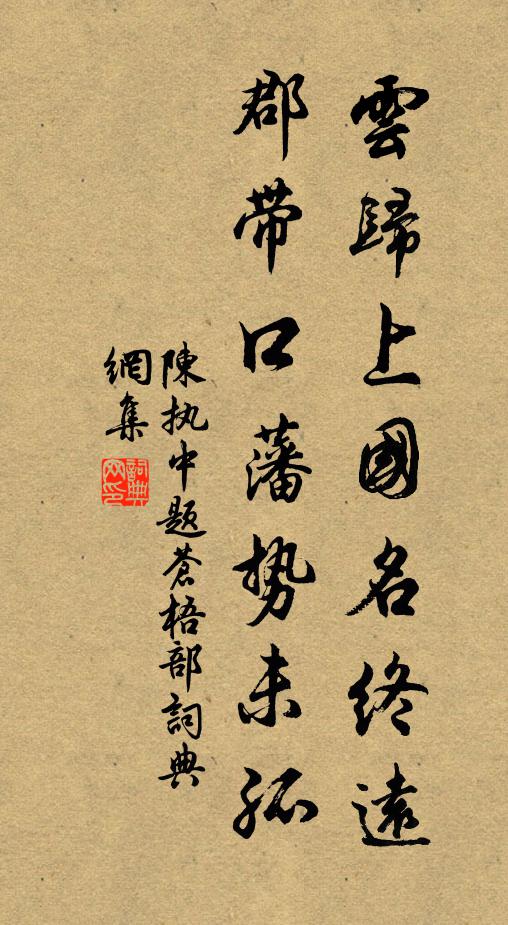 雲歸上國名終遠
郡带口藩势未孤
陳执中题蒼梧部詞典
網集
詞典
网印